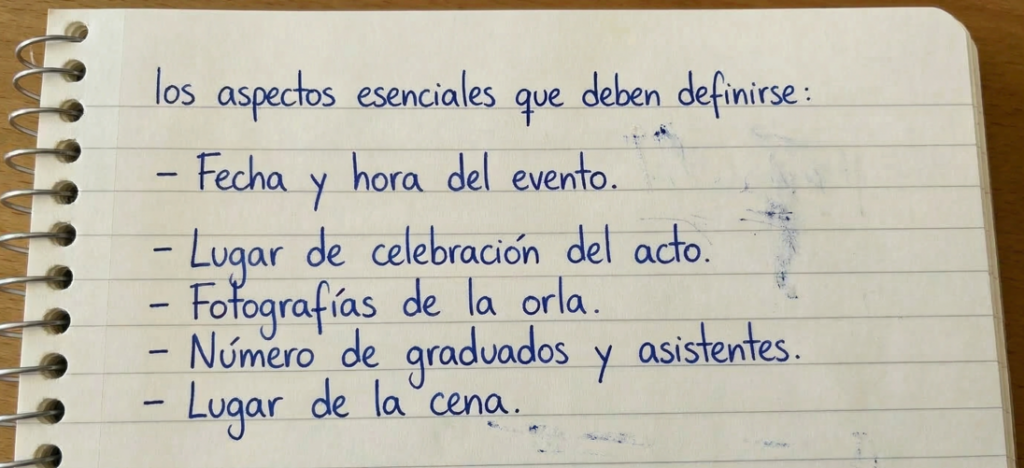 los aspectos esenciales que deben definirse:
- Fecha y hora del evento.
- Lugar de celebración del acto.
- Fotografías de la orla.
- Número de graduados y asistentes.
- Lugar de la cena.